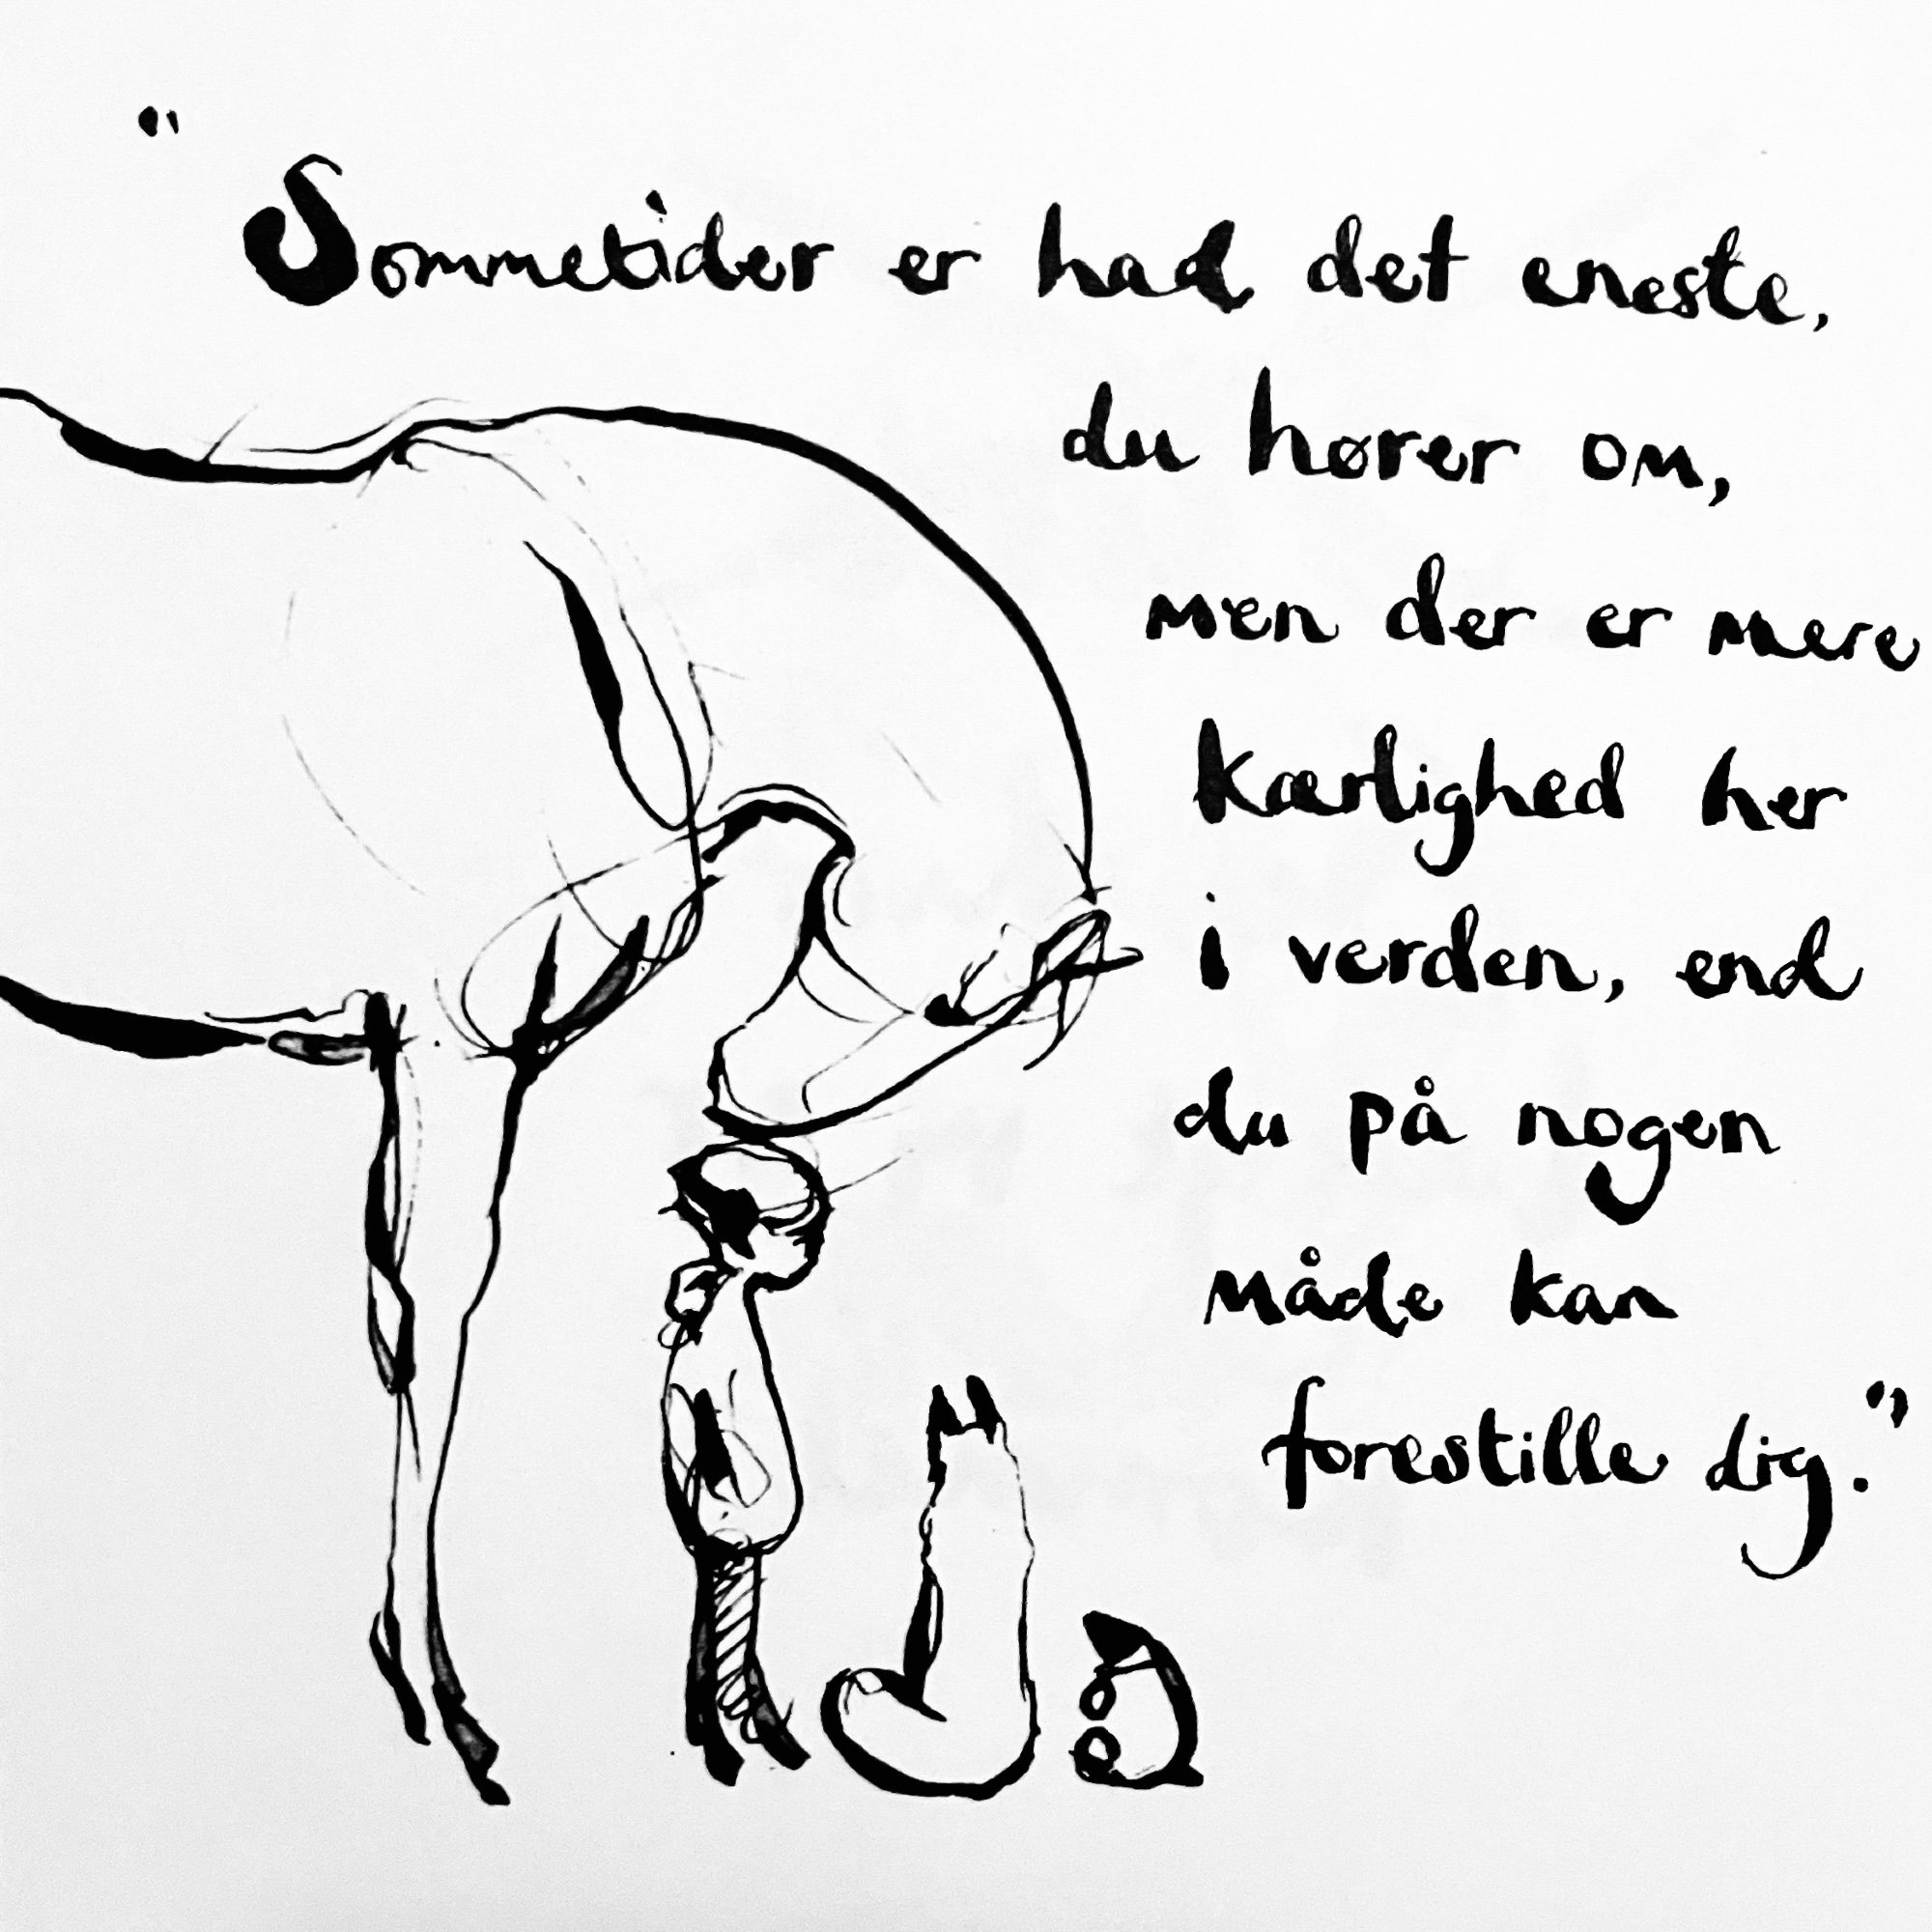 "Sommetider er had det eneste,
du hører om,
men der er mere
kærlighed her
i verden, end
du på nogen
måde kan
forestille dig."